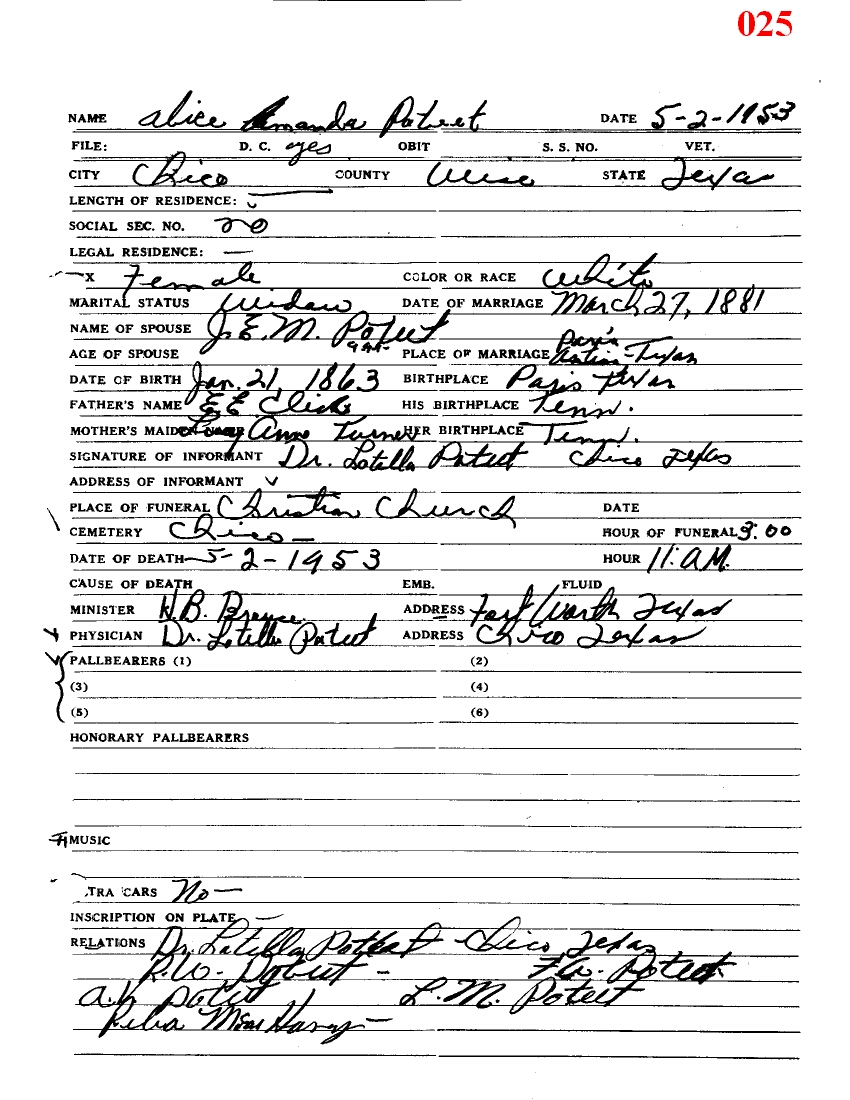 025
NAME Alice Amanda Poteet DATE 5-2-1953
FILE: D. C. yes OBIT S. S. NO. VET.
CITY Chico COUNTY Wise STATE Texas
LENGTH OF RESIDENCE:
SOCIAL SEC. NO. no
LEGAL RESIDENCE: —
X Female COLOR OR RACE White
MARITAL STATUS Widow DATE OF MARRIAGE March 27, 1881
NAME OF SPOUSE J. E. M. Poteet
AGE OF SPOUSE PLACE OF MARRIAGE Paris Texas
DATE OF BIRTH Jan. 21, 1863 BIRTHPLACE Paris Texas
FATHER'S NAME E E Click HIS BIRTHPLACE Tenn.
MOTHER'S MAIDEN Anne Turner HER BIRTHPLACE Tenn.
SIGNATURE OF INFORMANT Dr. Lotella Poteet Chico Texas
ADDRESS OF INFORMANT
PLACE OF FUNERAL Christian Church DATE
CEMETERY Chico — HOUR OF FUNERAL 3:00
DATE OF DEATH 5-2-1953 HOUR 11:A.M.
CAUSE OF DEATH EMB. FLUID
MINISTER W.B. ADDRESS Fort Worth Texas
PHYSICIAN Dr. Lotella Poteet ADDRESS Chico Texas
PALLBEARERS (1) (2)
(3) (4)
(5) (6)
HONORARY PALLBEARERS
MUSIC
TRA CARS No —
INSCRIPTION ON PLATE —
RELATIONS Dr. Lotella Poteet - Chico, Texas
R.W. Poteet - F.W. Poteet
A.H. Poteet L.M. Poteet
Reba